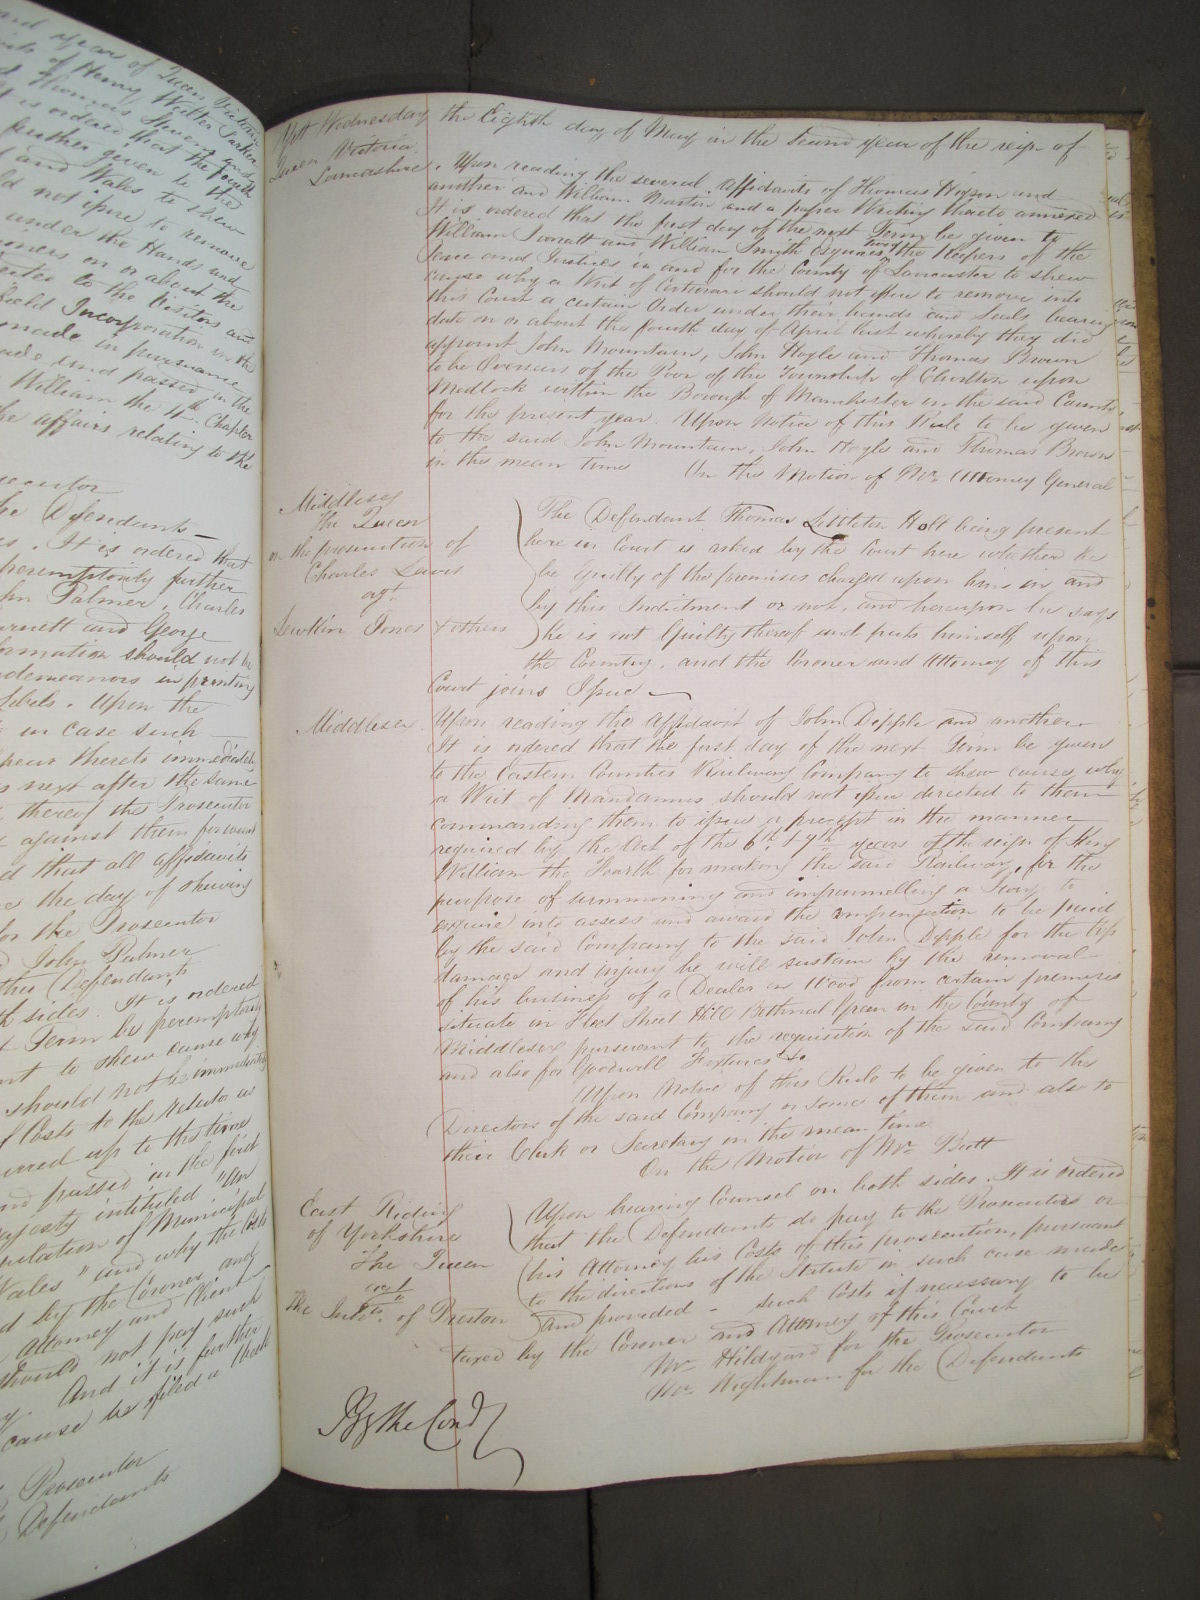 and year of Queen Victoria
of Henry Walter Parker
Thomas Stevens and
It is ordered that the fourth
further given to the
and Wales to shew
not issue to remove
under the Hands and
on or about the
to the Visitors and
Incorporation in the
made in pursuance
made and passed in the
William the 4th Chapter
the affairs relating to the
the Defendants
It is ordered that
peremptorily further
John Palmer, Charles
and George
Information should not be
misdemeanors in printing
Libels. Upon the
in case such
appear thereto immediately
next after the same
thereof the Prosecutor
against them forward
and that all affidavits
the day of shewing
for the Prosecutor
John Palmer
other Defendants
both sides. It is ordered
Term be peremptorily
to shew cause why
should not be immediately
of Costs to the relator as
incurred up to this time
and passed in the first
Majesty intituled "An
regulation of Municipal
Wales" and why the Costs
by the Coroner and
Attorney and Client
should not pay such
And it is further
cause be filed a
Prosecutor
Defendants
Yett Wednesday the Eighth day of May in the Second year of the reign of
Queen Victoria
Lancashire. Upon reading the several Affidavits of Thomas Wigson and
another and William Marten and a paper Writing thereto annexed
It is ordered that the first day of the next Term be given to
William and William Smyth esquires two of the Keepers of the
Peace and Justices in and for the County of Lancaster to shew
cause why a Writ of Certiorari should not issue to remove into
this Court a certain Order under their hands and Seals bearing
date on or about the fourth day of April last whereby they did
appoint John Mountain, John Hoyle and Thomas Brown
to be Overseers of the Poor of the Township of Chorlton upon
Medlock within the Borough of Manchester in the said County
for the present year. Upon Notice of this Rule to be given
to the said John Mountain, John Hoyle and Thomas Brown
in the mean time On the Motion of Mr. Attorney General
Middlesex
The Queen
on the prosecution of
Charles Lewis
agt.
Lewellin Jones & others
The Defendant Thomas Littleton Holt being present
here in Court is asked by the Court here whether he
be Guilty of the premises charged upon him in and
by this Indictment or not, and hereupon he says
he is not Guilty thereof and puts himself upon
the Country, and the Coroner and Attorney of this
Court joins Issue
Middlesex Upon reading the Affidavit of John Dipple and another
It is ordered that the first day of the next Term be given
to the Eastern Counties Railway Company to shew cause why
a Writ of Mandamus should not issue directed to them
commanding them to issue a precept in the manner
required by the Act of the 6th & 7th years of the reign of King
William the Fourth for making the said Railway, for the
purpose of summoning and impannelling a Jury to
enquire into assess and award the compensation to be paid
by the said Company to the said John Dipple for the loss
damage and injury he will sustain by the removal
of his business of a Dealer in Wood from certain premises
situate in Fleet Street Hill Bethnal Green in the County of
Middlesex pursuant to the requisition of the said Company
and also for Goodwill Fixtures &c.
Upon Notice of this Rule to be given to the
Directors of the said Company or some of them and also to
their Clerk or Secretary in the mean time
On the Motion of Mr. Butt
East Riding
of Yorkshire
The Queen
agt.
The Inhts. of Preston
Upon hearing Counsel on both sides. It is ordered
that the Defendants do pay to the Prosecutor or
his Attorney his Costs of this prosecution, pursuant
to the directions of the Statute in such case made
and provided - such Costs if necessary to be
taxed by the Coroner and Attorney of this Court
Mr. Hildyard for the Prosecutor
Mr. Wightman for the Defendants
By the Court